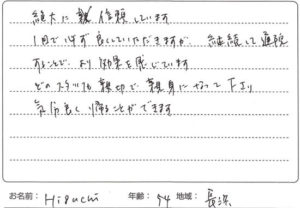 絶大に信頼しています
1回で必ず良くしていただきますが、継続して通院
することで、より効果を感じています
どのスタッフも親切で、親身になって下さり
気分良く帰ることができます
お名前： Higuchi 年齢： 54 地域： 長浜